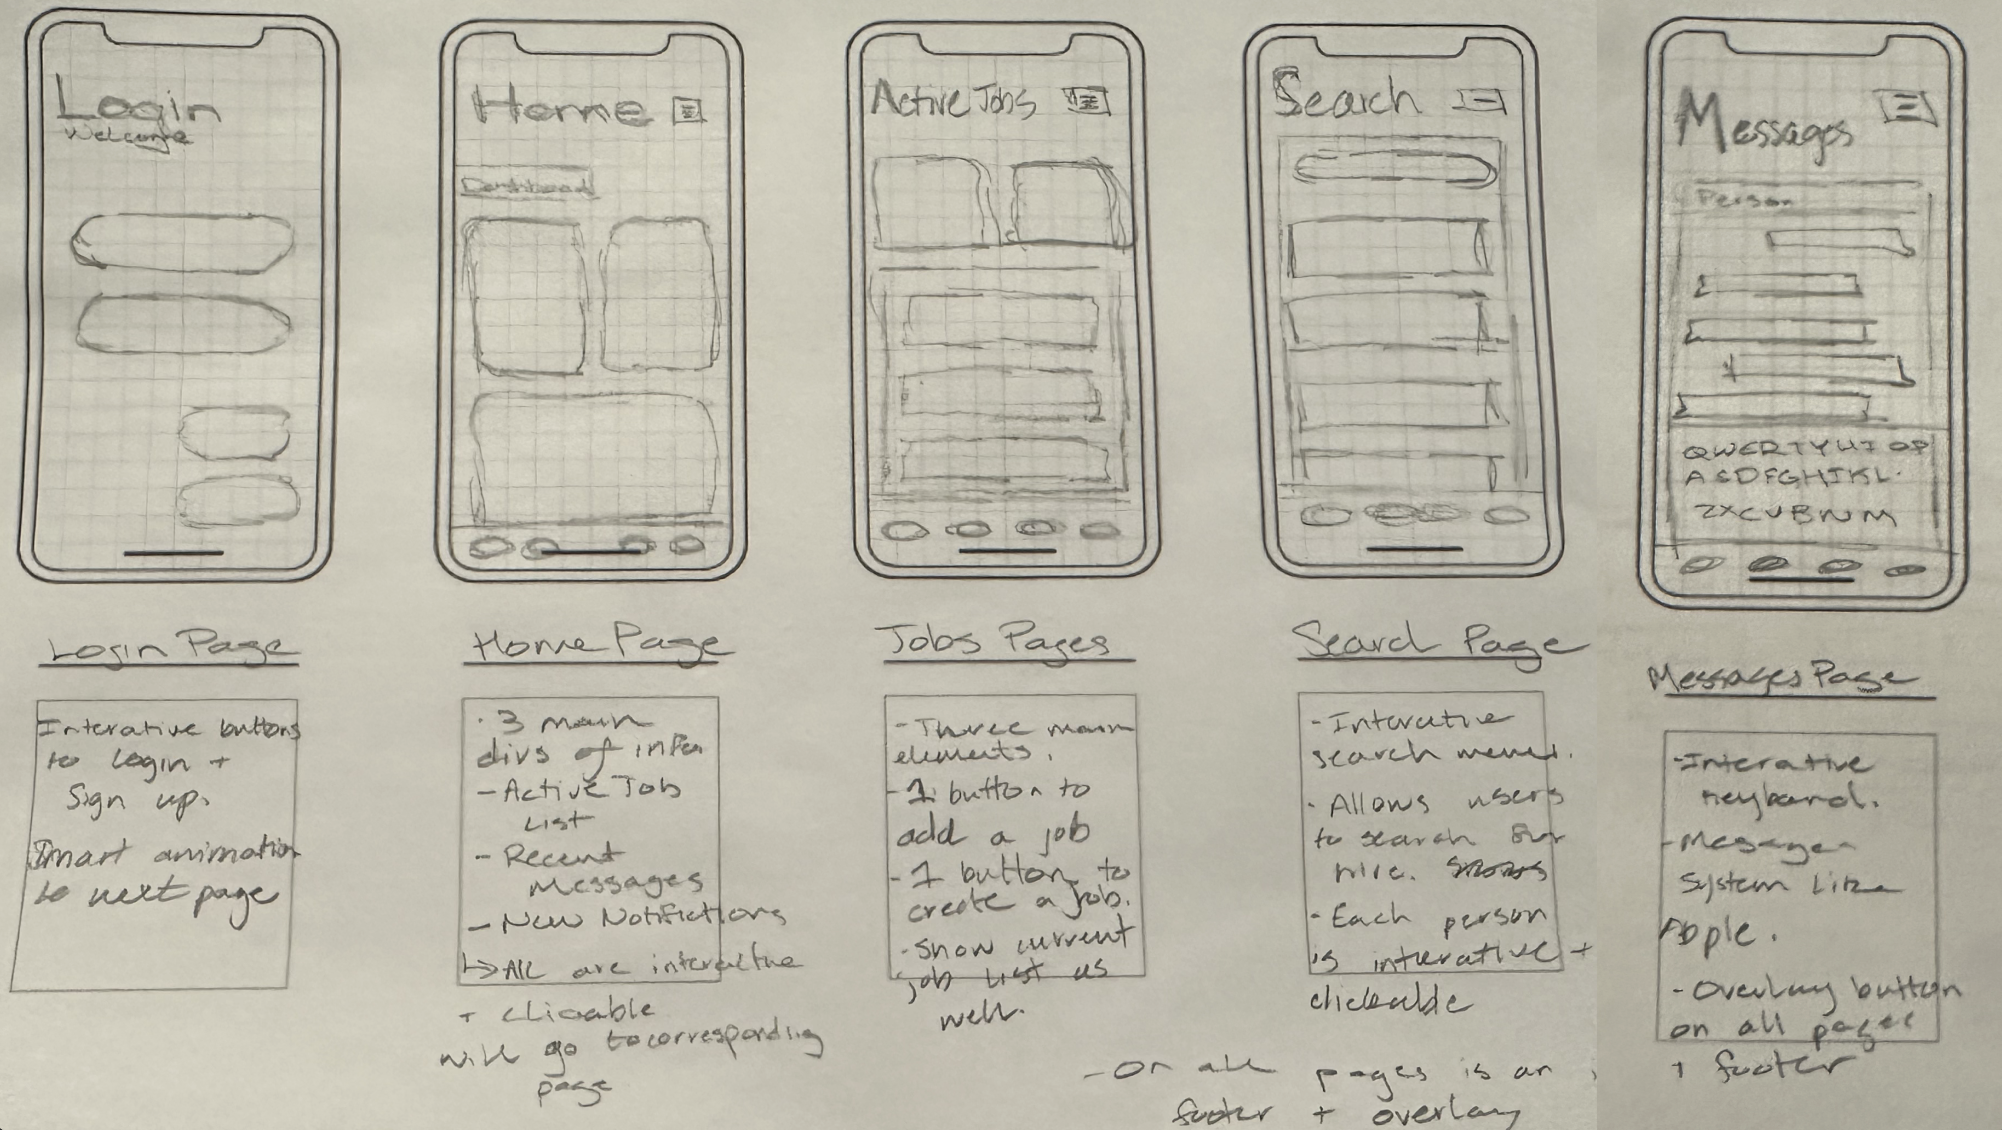 Login
Welcome
Home
Dashboard
Active Jobs
Search
Messages
Person
QWERTYUIOP
ASDFGHJKL.
ZXCVBNM
Login Page
Interative buttons
to login +
Sign up.
Smart animation
to next page
Home Page
· 3 main
divs of info
- Active Job
List
- Recent
Messages
- New Notifictions
↳ All are interactive
+ clicable
will go to corresponding
page
Jobs Pages
- Three main
elements.
- 1 button to
add a job
- 1 button to
create a job.
- Show current
job list as
well.
Search Page
- Interative
search menu.
· Allows users
to search for
hire.
- Each person
is interative +
clickable
- On all pages is an
footer + overlay
Messages Page
- Interative
Keyboard.
- Message
System like
Apple.
- Overlay button
on all pages
+ footer